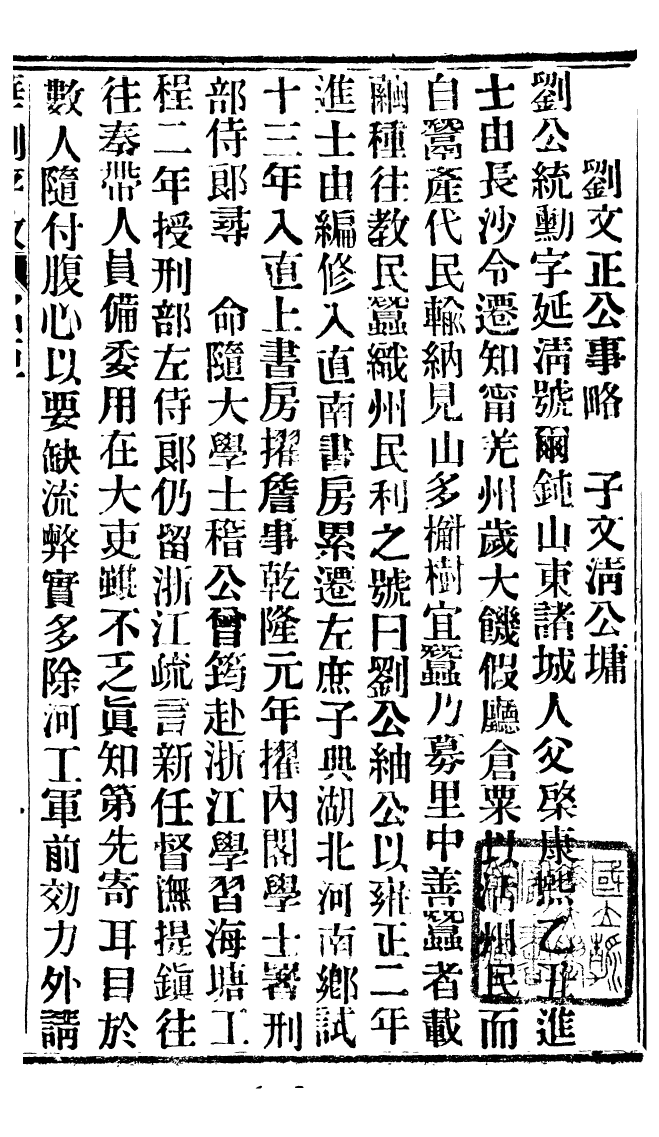 劉文正公事略　子文淸公墉
劉公統勳字延淸號爾鈍山東諸城人父棨康熙乙丑進
士由長沙令遷知甯羌州歲大饑假廳倉粟以活州民而
自鬻產代民輸納見山多槲樹宜蠶乃募里中善蠶者載
繭種往教民蠶織州民利之號曰劉公紬公以雍正二年
進士由編修入直南書房累遷左庶子典湖北河南鄉試
十三年入直上書房擢詹事乾隆元年擢內閣學士署刑
部侍郎尋　命隨大學士稽公曾筠赴浙江學習海塘工
程二年授刑部左侍郎仍留浙江疏言新任督撫提鎮往
往奏帶人員備委用在大吏雖不乏眞知第先寄耳目於
數人隨付腹心以要缺流弊實多除河工軍前効力外請